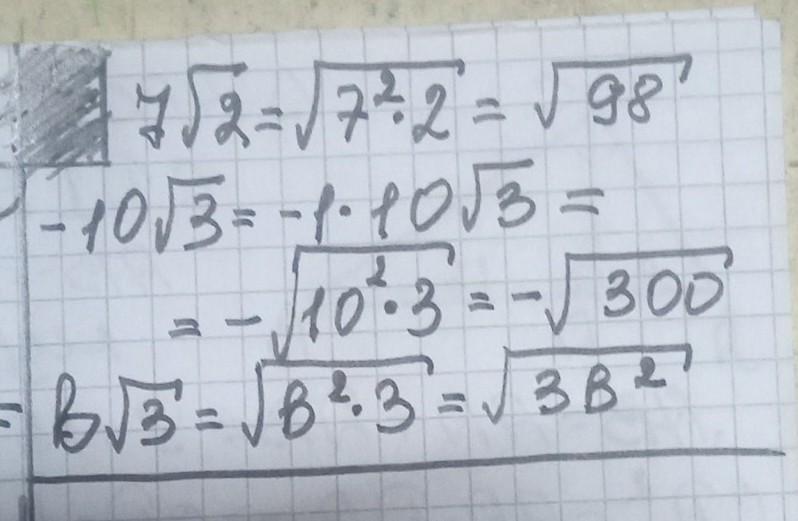 7√2 = √7²·2 = √98
-10√3 = -1·10√3 =
= -√10²·3 = -√300
= B√3 = √B²·3 = √3B²